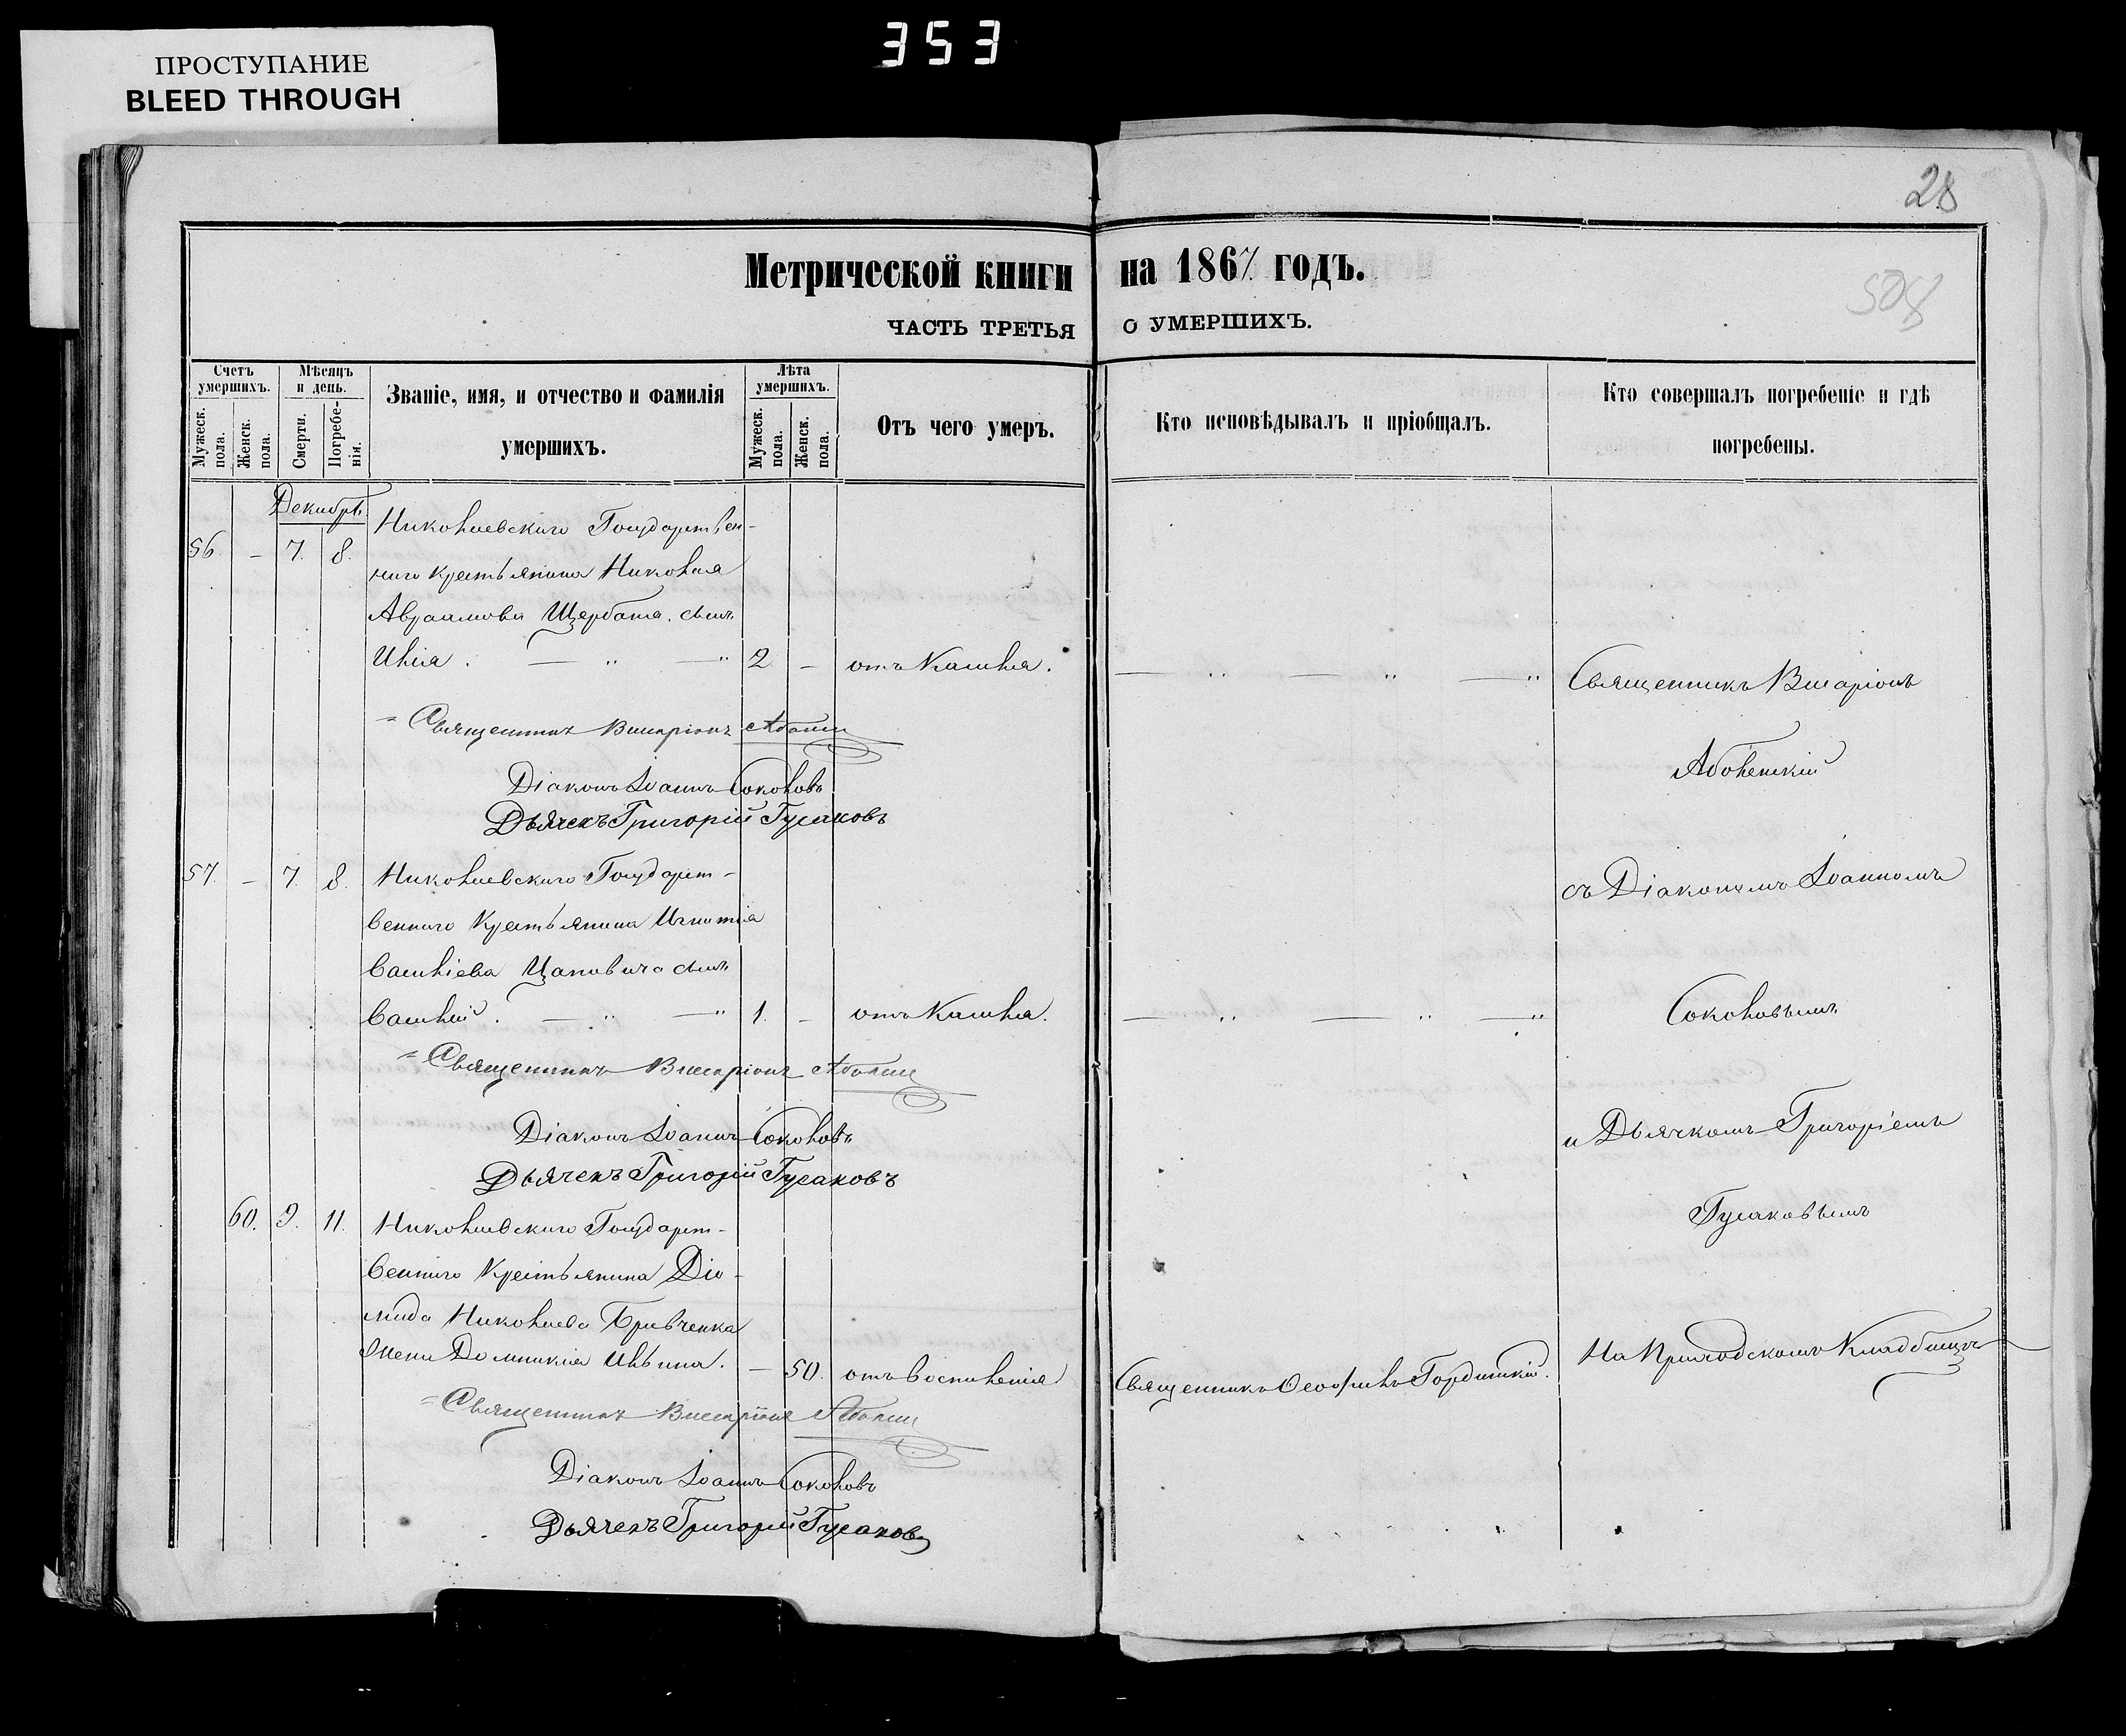 353
ПРОСТУПАНИЕ
BLEED THROUGH
28
Метрической книги на 1867 годъ.
508
ЧАСТЬ ТРЕТЬЯ О УМЕРШИХЪ.
Счетъ умершихъ.
Мужеск. пола.
Женск. пола.
Мѣсяцъ и день.
Смерти.
Погребенія.
Званіе, имя, и отчество и фамилія
умершихъ.
Лѣта умершихъ.
Мужеск. пола.
Женск. пола.
Отъ чего умеръ.
Кто исповѣдывалъ и пріобщалъ.
Кто совершалъ погребеніе и гдѣ
погребены.
Декабрь
56. – 7. 8. Николаевскаго Государствен-
наго крестьянина Николая
Авраамова Щербата сынъ
Илія. — " — " 2 – отъ Кашля. — " — " — "
= Священникъ Висаріонъ
Діаконъ Іоаннъ Соколовъ
Дьячекъ Григорій Гусаковъ
57. – 7. 8. Николаевскаго Государст-
веннаго Крестьянина Игнатія
Василіева сынъ
Василій. — " — " 1. – отъ Кашля. — " — " — "
= Священникъ Висаріонъ
Діаконъ Іоаннъ Соколовъ
Дьячекъ Григорій Гусаковъ
60. 9. 11. Николаевскаго Государст-
веннаго Крестьянина Діо-
мида Николаева
Жена Домникія Ильина. – 50. отъ воспаленія Священникъ Ѳеофилъ
= Священникъ Висаріонъ
Діаконъ Іоаннъ Соколовъ
Дьячекъ Григорій Гусаковъ
Священникъ Висаріонъ
съ Діакономъ Іоанномъ
Соколовымъ
и Дьячкомъ Григоріемъ
Гусаковымъ
На Приходскомъ Кладбищѣ